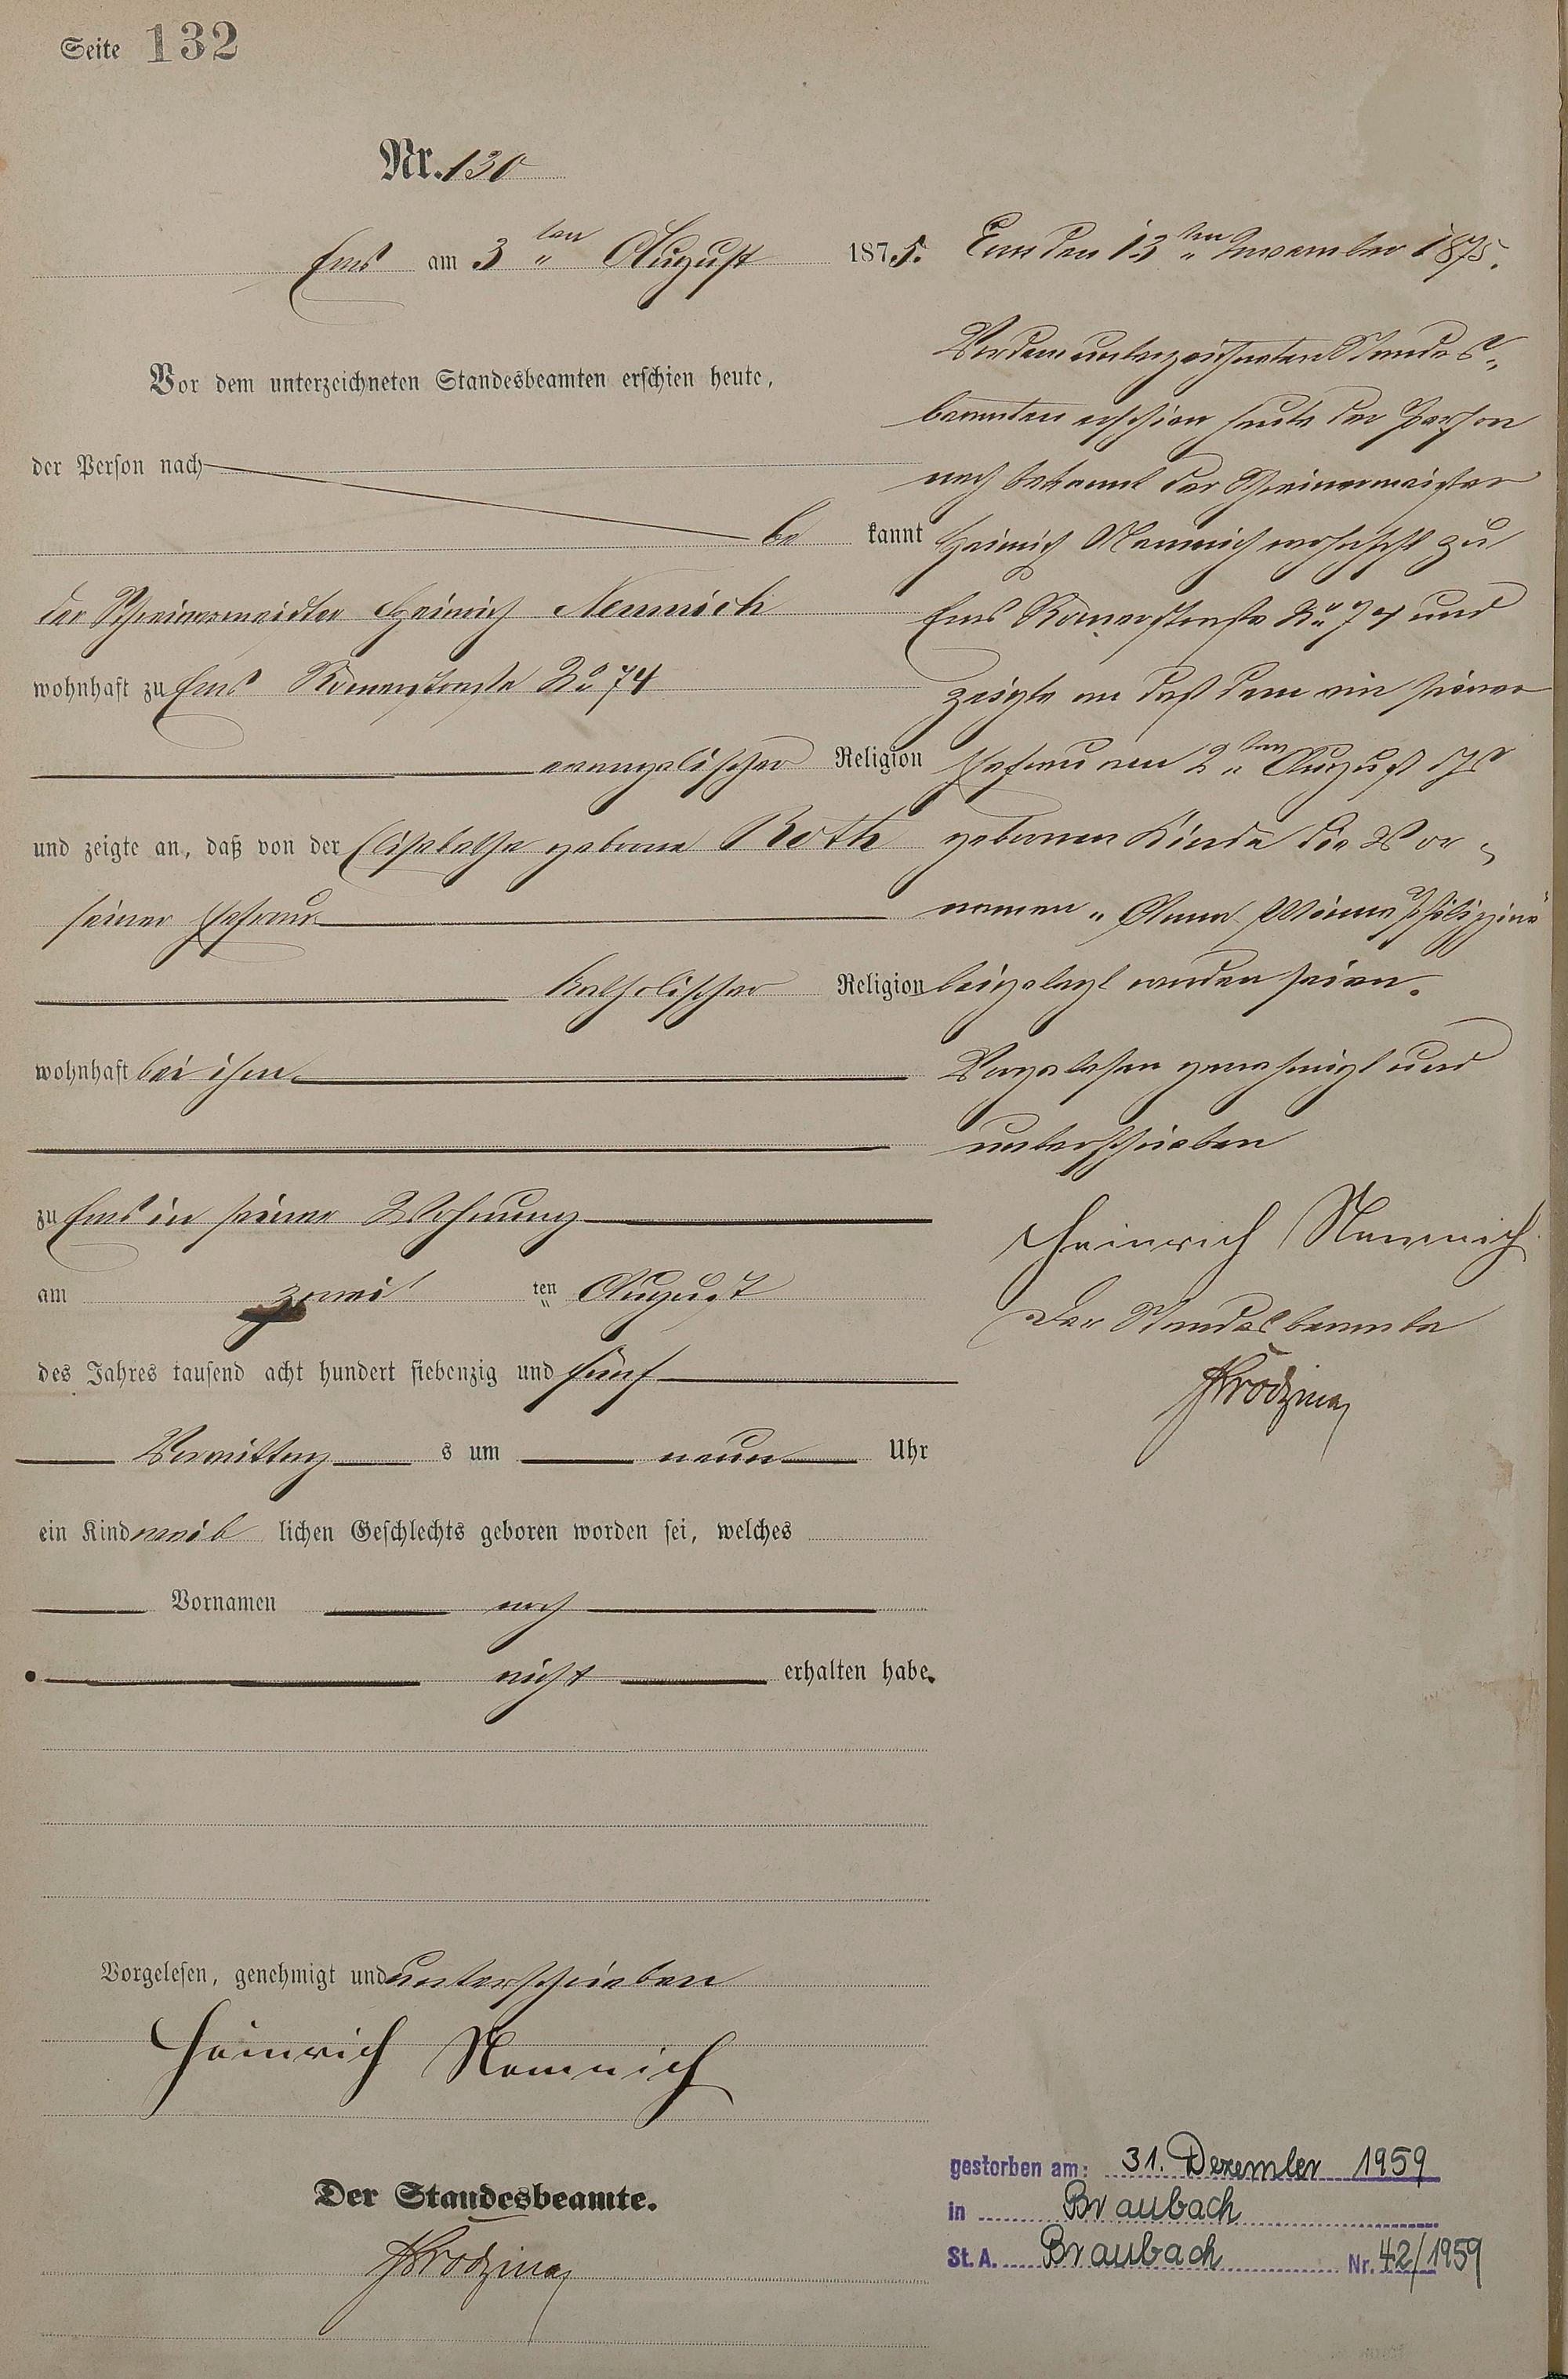 Seite 132
Nr. 130
Ems am 3ten August 1875.
Vor dem unterzeichneten Standesbeamten erschien heute,
der Person nach
be kannt
der Schreinermeister Heinrich Nemnich
wohnhaft zu Ems Römerstraße No 74
evangelischer Religion
und zeigte an, daß von der Elisabetha geborne Roth
seiner Ehefrau
katholischer Religion
wohnhaft bei ihm
zu Ems in seiner Wohnung
am zwei ten August
des Jahres tausend acht hundert siebenzig und fünf
Vormittag s um neun Uhr
ein Kind weib lichen Geschlechts geboren worden sei, welches
Vornamen noch
nicht erhalten habe.
Vorgelesen, genehmigt und unterschrieben
Heinrich Nemnich
Der Standesbeamte.
Ems den 13ten November 1875.
Vor dem unterzeichneten Standes-
beamten erschien heute der Person
nach bekannt der Schreinermeister
Heinrich Nemnich wohnhaft zu
Ems Römerstraße No 74 und
zeigte an daß dem von seiner
Ehefrau am 2ten August djs
gebornen Kinde die Vor-
namen "Anna Mina Philippine"
beigelegt worden seien.
Vorgelesen genehmigt und
unterschrieben
Heinrich Nemnich
Der Standesbeamte
gestorben am: 31. Dezember 1959
in Braubach
St. A. Braubach Nr. 42/1959